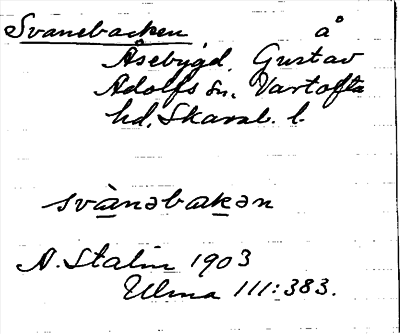 Svanebacken å
Åsebygd, Gustav
Adolfs sn, Vartofta
hd, Skarab. l.
svànəbakən
A. Stalin 1903
Ulma 111:383.